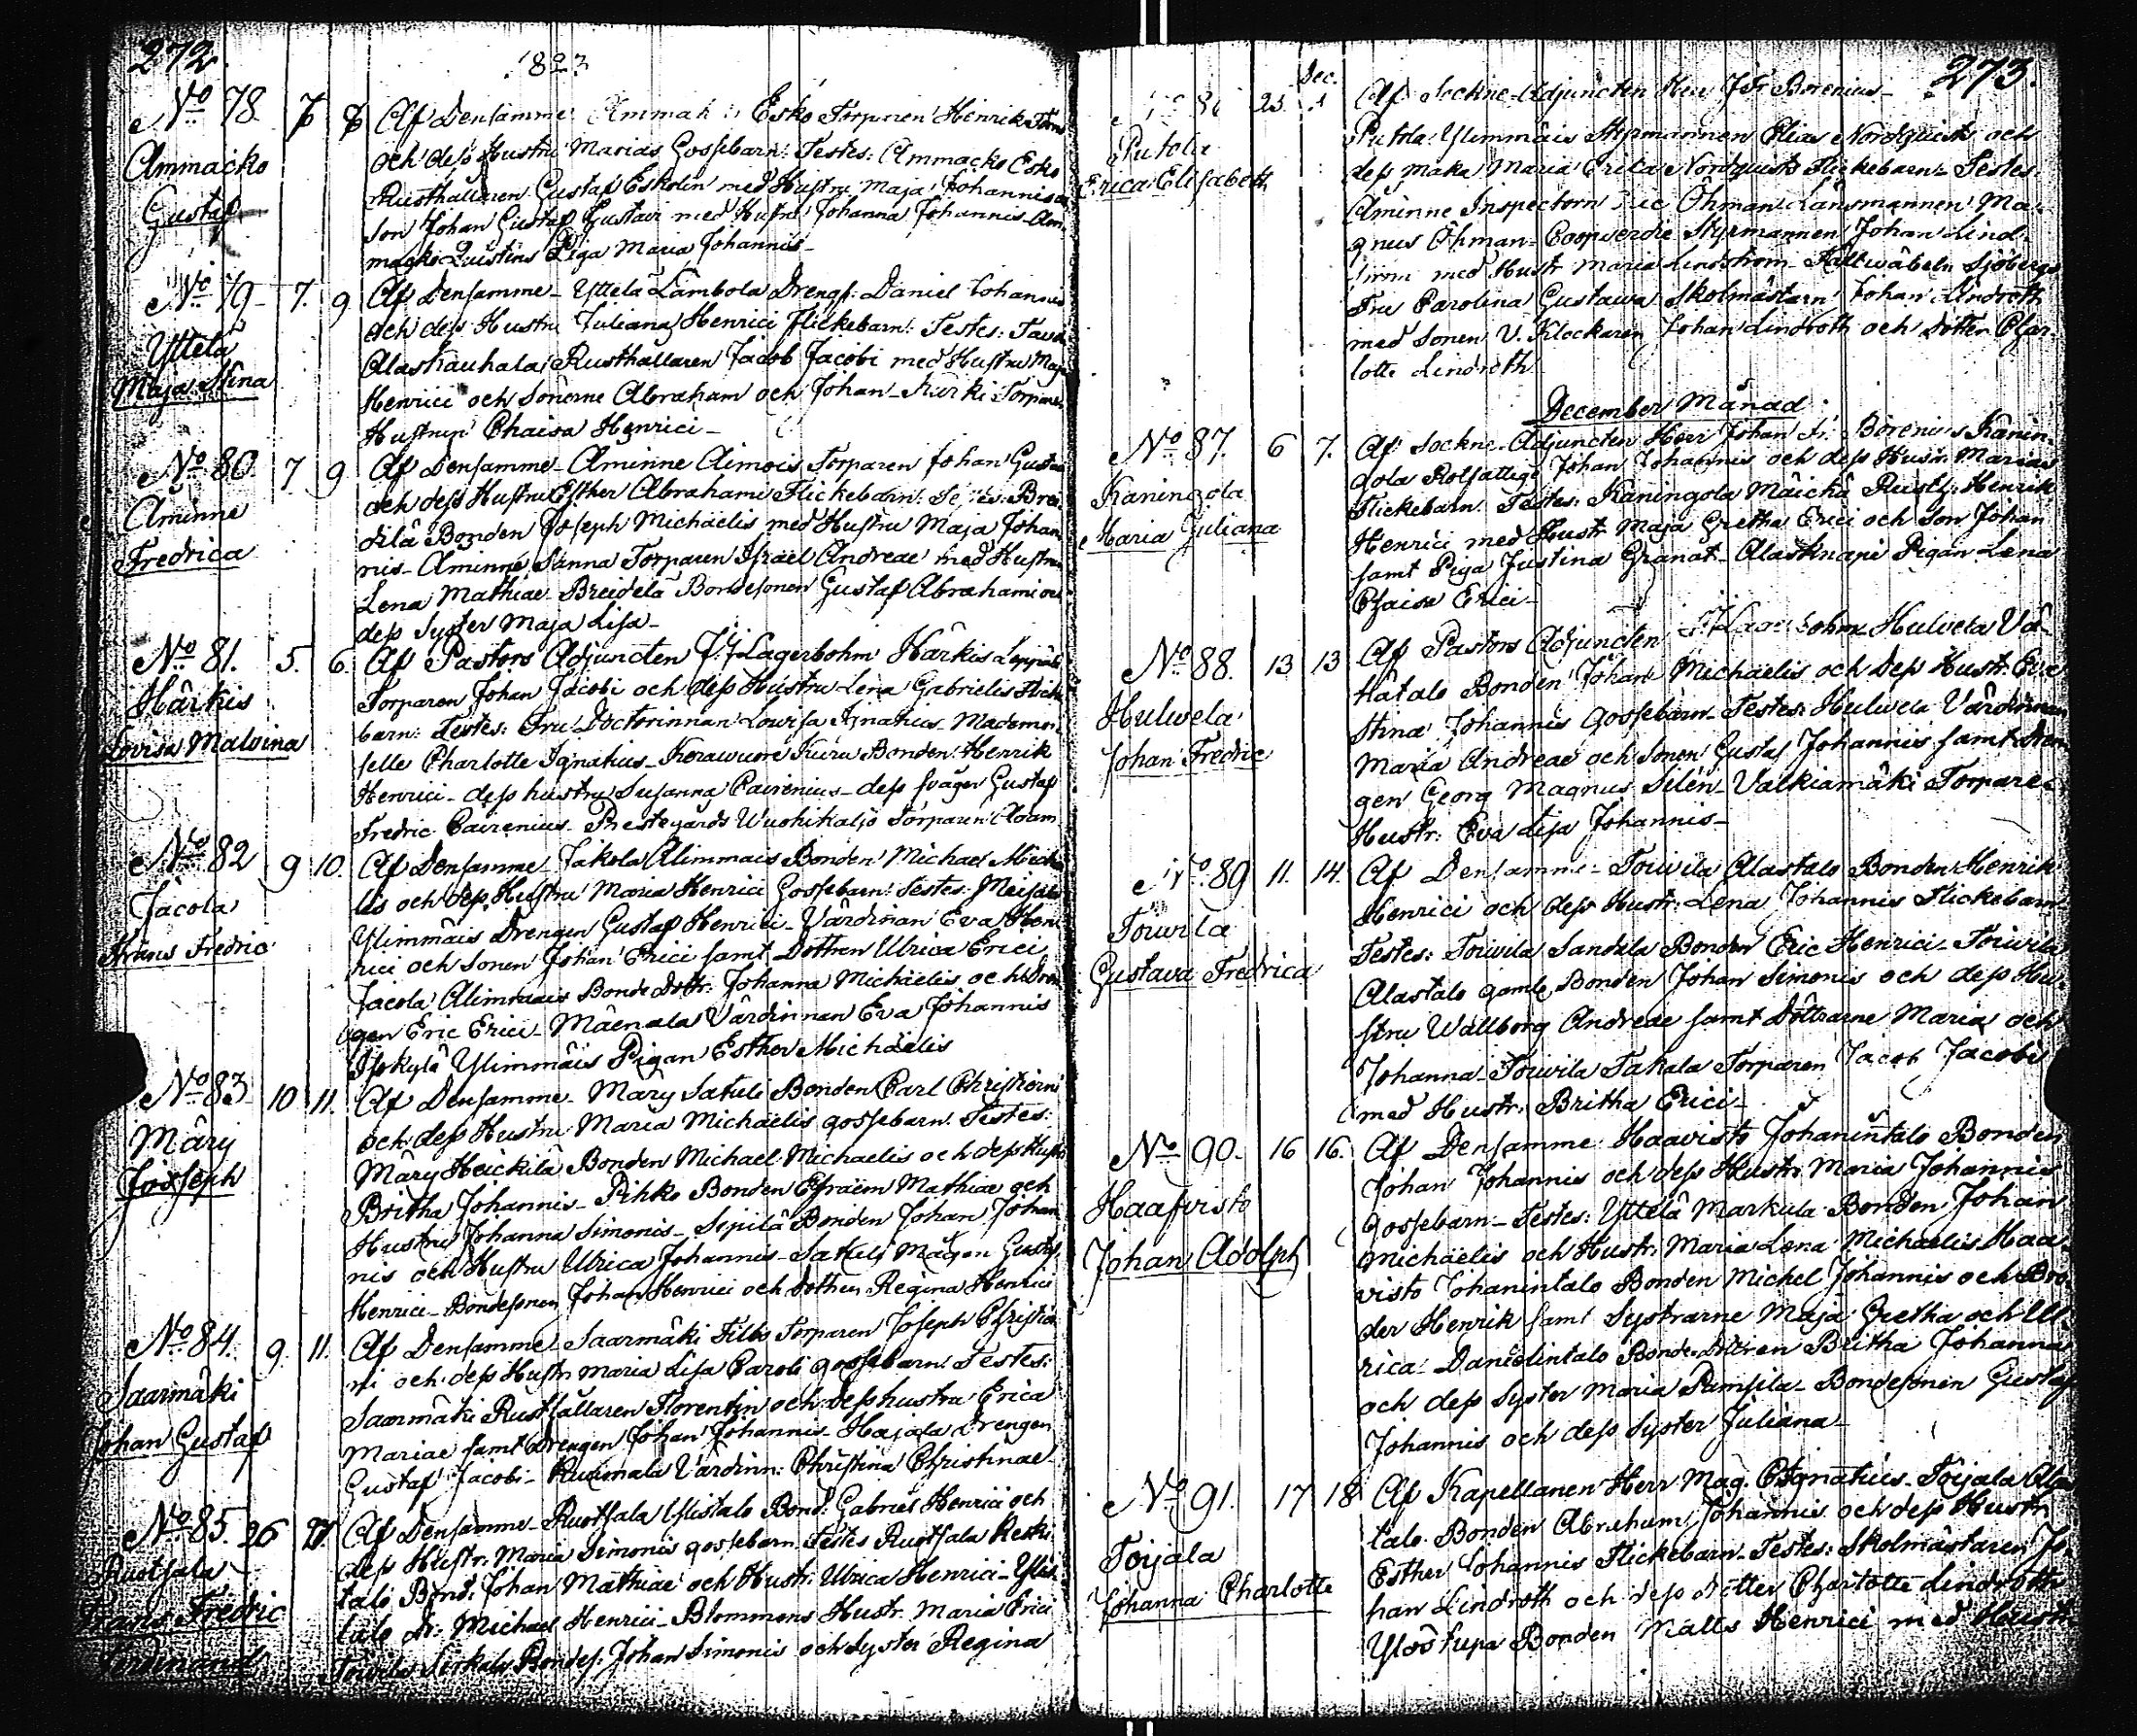 272.
1823
No 78. 7 8 Af Densamme Ammak Esko Torparen Henrik Thom
Ammacko och dess Hustru Marias Gossebarn. Testes: Ammacko Esko
Gustaf Rusthållaren Gustaf Eskolin med Hustru Maja Johannis
son Johan Gustaf Gustavi med Hustru Johanna Johannis Am-
macko Qvistins Piga Maria Johannis
No 79 7. 9 Af Densamme Yttelä Lambola Drengs: Daniel Johannis
Yttelä och dess Hustru Juliana Henrici Flickebarn. Testes:
Maja Stina Alaskauhala Rusthållaren Jacob Jacobi med Hustru Maja
Henrici och Sönerne Abraham och Johan Kurki Torparen
Hustrun Chaisa Henrici
No 80. 7 9 Af Densamme Åminne Aimois Torparen Johan Gusta
Åminne och dess Hustru Esther Abrahami Flickebarn. Testes: Brei
Fredrica dilä Bonden Joseph Michaelis med Hustru Maja Johan
nis Åminne Sanna Torparen Israel Andreae med Hustru
Lena Mathiae Breidelä Bondesonen Gustaf Abrahami och
dess Syster Maja Lisa
No 81. 5. 6. Af Pastors Adjuncten F: J Lagerbohm Härkis
Härkis Torparen Johan Jacobi och dess Hustru Lena Gabrielis Flicke
Lovisa Malvina barn: Testes: Fru Doctorinnan Lovisa Ignatius Mademoi
selle Charlotte Ignatius Korawuore Kuiru Bonden Henrik
Henrici dess hustru Susanna Cairenius dess svåger Gustaf
Fredric Cairenius Prestegårds Wuohikaljo Torparen Adam
No 82 9 10. Af Densamme Jakola Alimmais Bonden Michael Michae
Jacola lis och dess Hustru Maria Henrici Gossebarn: Testes:
Frans Fredric Ylimmäis Drengen Gustaf Henrici Värdinnan Eva Hen
rici och Sonen Johan Erici samt Dottren Ulrica Erici
Jacola Alimmais Bonde Dottr: Johanna Michaelis och Dren
gen Eric Erici Mäenala Värdinnan Eva Johannis
Isokylä Ylimmäis Pigan Esther Michaelis
No 83 10 11. Af Densamme Märy Satuli Bonden Carl Christierni
Märy och dess Hustru Maria Michaelis gossebarn. Testes:
Joseph Märy Heickilä Bonden Michael Michaelis och dess Hustru
Britha Johannis Pihko Bonden Efraim Mathiae och
Hustru Johanna Simonis Sipilä Bonden Johan Johan
nis och Hustru Ulrica Johannis Satuli Mågen Gustaf
Henrici Bondesonen Johan Henrici och dottren Regina Henrici
No 84. 9. 11. Af Densamme Saarmäki Torparen Joseph Christier
Saarmäki ni och dess Hustr: Maria Lisa Caroli gossebarn. Testes:
Johan Gustaf Saarmäki Rusthållaren Florentin och dess hustru Erica
Mariae samt Drengen Johan Johannis Hajala Drengen
Gustaf Jacobi Ruuimala Värdinn: Christina Christinae
No 85. 26 27. Af Densamme Ruotsala Ylistalo Bond: Gabriel Henrici och
Ruotsala dess Hustr. Maria Simonis gossebarn Testes Ruotsala Keski
Frans Fredric talo Bond: Johan Mathiae och Hustr: Ulrica Henrici Ylis
Ferdinand talo Dr: Michael Henrici Blommens Hustr. Maria Erici
Bondes: Johan Simonis och Syster Regina
273.
Dec.
25. 1 Af Sockne-Adjuncten Herr J Fr. Borenius
Putola Putola Ylimmäis Styrmannen Elias Nordquist och
Erica Elisabeth dess Maka Maria Erica Nordquists Flickebarn Testes.
Åminne Inspectorn Öhman Länsmannen Ma-
gnus Öhman Coopverdie Styrmannen Johan Lind-
ström med Hustr Maria Lindström Fältwäbeln Sjöbergs
Fru Carolina Gustawa Skolmästarn Johan Lindroth
med Sonen V. Klockaren Johan Lindroth och dotter Char-
lotte Lindroth
December Månad
No 87. 6 7. Af Sockne-Adjuncten Herr Johan Fr: Borenius Kanin-
Kaningola gola Rotfattige Johan Johannis och dess Hustr. Marias
Maria Juliana Flickebarn. Testes: Kaningola Mäickä Rusth: Henrik
Henrici med Hustr Maja Gretha Erici och Son Johan
samt Piga Justina Granat Alasknapi Pigan Lena
Chaisa Erici
No 88. 13 13 Af Pastors Adjuncten F: J Lagerbohm Hulvela Vä-
Hulvela hätalo Bonden Johan Michaelis och Dess Hustr. Eva
Johan Fredric Stina Johannis Gossebarn Testes: Hulvela Värdinnan
Maria Andreae och Sonen Gustaf Johannis samt Dren
gen Georg Magnus Silén Valkiamäki Torpare-
Hustr: Eva Lisa Johannis
No 89 11. 14. Af Densamme Touvila Alastalo Bonden Henrik
Touvila Henrici och dess Hustr: Lena Johannis Flickebarn
Gustava Fredrica Testes: Touvila Sandala Bonden Eric Henrici Touvila
Alastalo gamle Bonden Johan Simonis och dess Hu-
stru Wallborg Andreae samt Döttrarne Maria och
Johanna Touvila Takala Torparen Jacob Jacobi
med Hustr. Britha Erici
No 90. 16 16. Af Densamme Haavisto Johanintalo Bonden
Haafvisto Johan Johannis och dess Hustr Maria Johannis
Johan Adolph Gossebarn Testes: Yttelä Markula Bonden Johan
Michaelis och Hustr: Maria Lena Michaelis Haa-
visto Johanintalo Bonden Michel Johannis och Bro
der Henrik samt Systrarne Maja Gretha och Ul-
rica Danielintalo Bonde-Dottren Britha Johanna
och dess Syster Maria Pämpila Bondesonen Gustaf
Johannis och dess Syster Juliana
No 91. 17 18 Af Kapellanen Herr Mag. C Ignatius Toijala
Toijala talo Bonden Abraham Johannis och dess Hustr
Johanna Charlotte Esther Johannis Flickebarn Testes: Skolmästaren Jo
han Lindroth och dess dotter Charlotte Lindroth
Ylöstupa Bonden Matts Henrici med Hustr